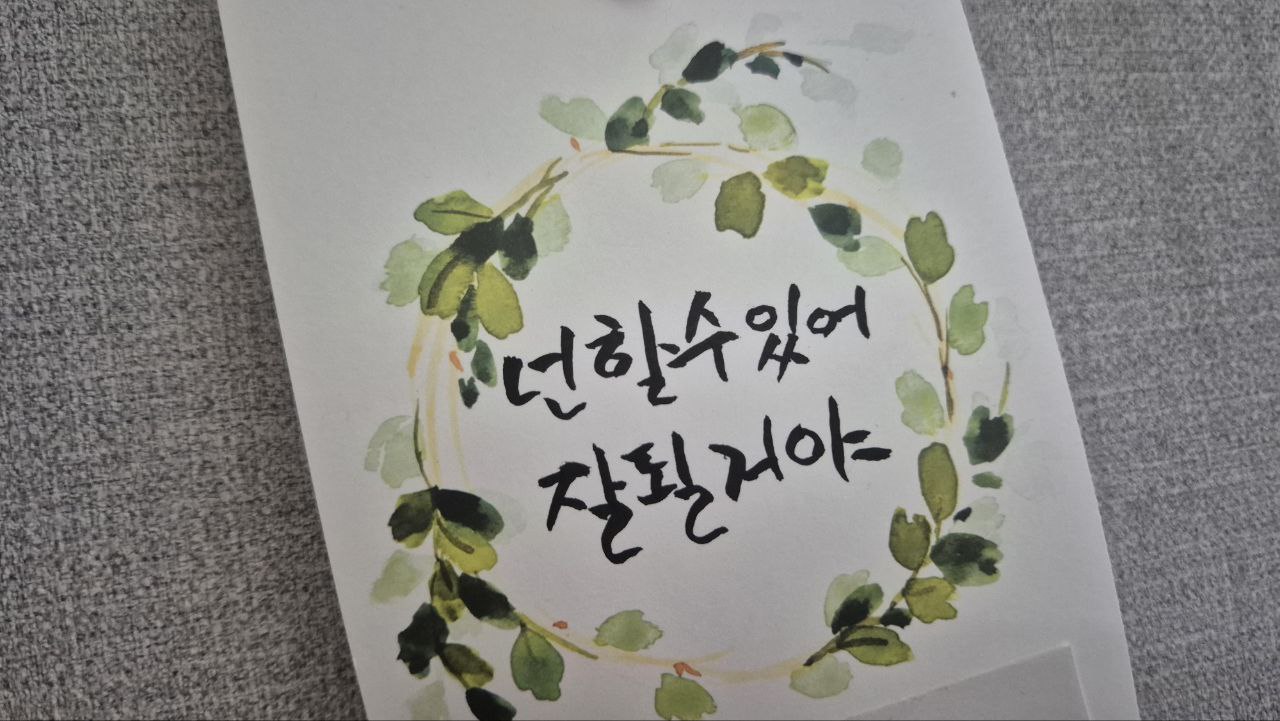 넌 할 수 있어
잘 될 거야